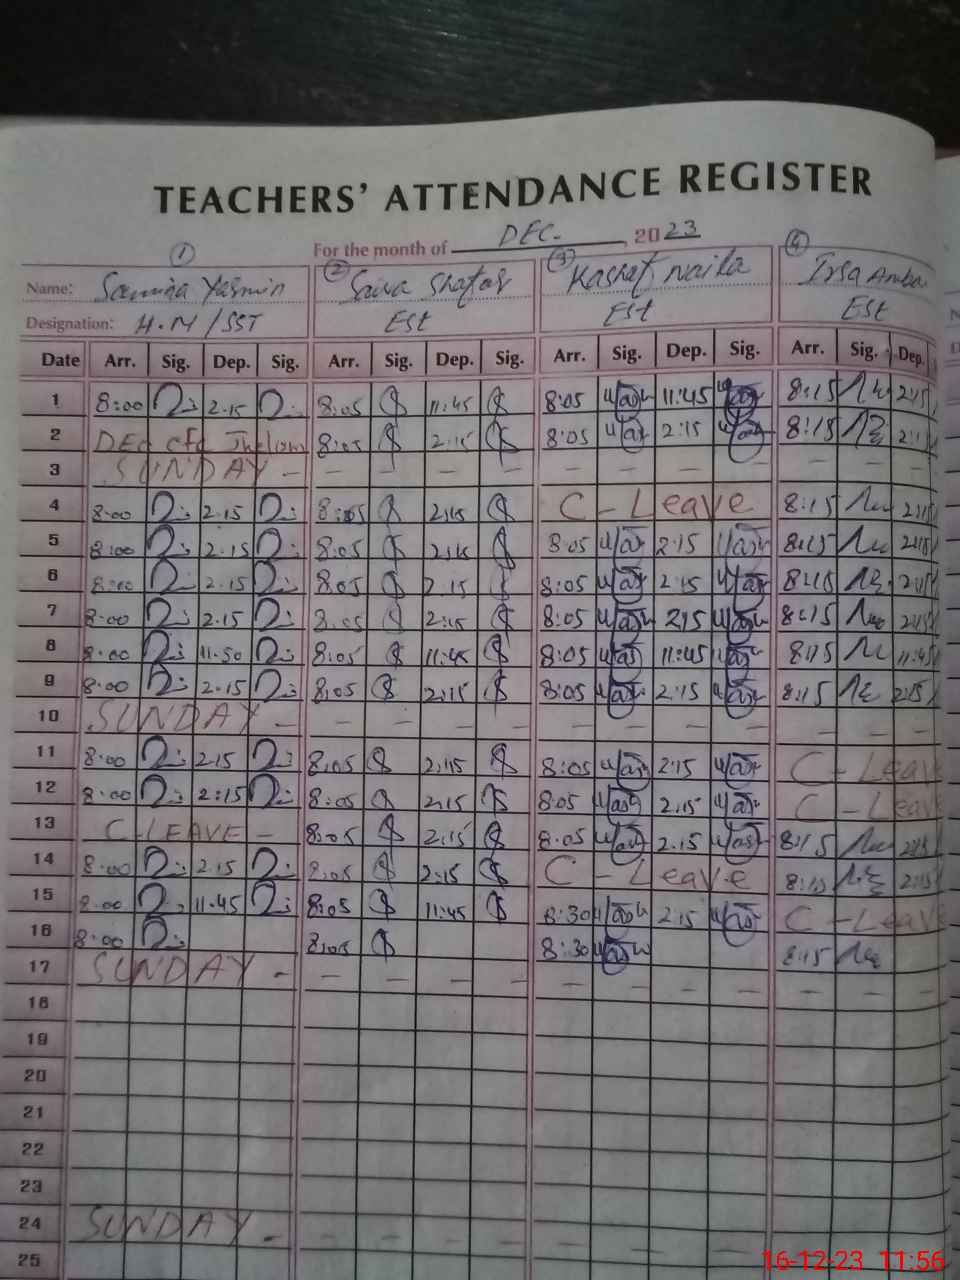 TEACHERS' ATTENDANCE REGISTER
For the month of DEC. , 2023
1 2 3 4
Name: Samina Yasmin Saira Shafas Kashaf Naila Irsa Amba
Designation: H.M/SST Est Est Est
Date Arr. Sig. Dep. Sig. Arr. Sig. Dep. Sig. Arr. Sig. Dep. Sig. Arr. Sig. Dep.
1 8:00 2.15 8:05 11:45 8:05 11:45 8:15 2:15
2 8:05 2:15 8:05 2:15 8:15 2:1
3 SUNDAY - - - - - - - - - - - -
4 8:00 2.15 8:05 2:15 C - Leave 8:15 2:15
5 8:00 2.15 8:05 2:15 8:05 2:15 8:15 2:15
6 8:00 2.15 8:05 2:15 8:05 2:15 8:15 2:15
7 8:00 2.15 8:05 2:15 8:05 2:15 8:15 2:15
8 8:00 11.50 8:05 11:45 8:05 11:45 8:15 11:45
9 8:00 2.15 8:05 2:15 8:05 2:15 8:15 2:15
10 SUNDAY - - - - - - - - - - - -
11 8:00 2.15 8:05 2:15 8:05 2:15 C - Leav
12 8:00 2:15 8:05 2.15 8:05 2.15 C - Leav
13 C-LEAVE - 8:05 2:15 8:05 2.15 8:15 2:15
14 8:00 2.15 8:05 2:15 C - Leave 8:15 2:15
15 8:00 11.45 8:05 11:45 8:30 2:15 C - Leav
16 8:00 8:05 8:30 8:15
17 SUNDAY - - - - - - - - - - - -
18
19
20
21
22
23
24 SUNDAY - - - - - - - - - - - -
25
16-12-23 11:56